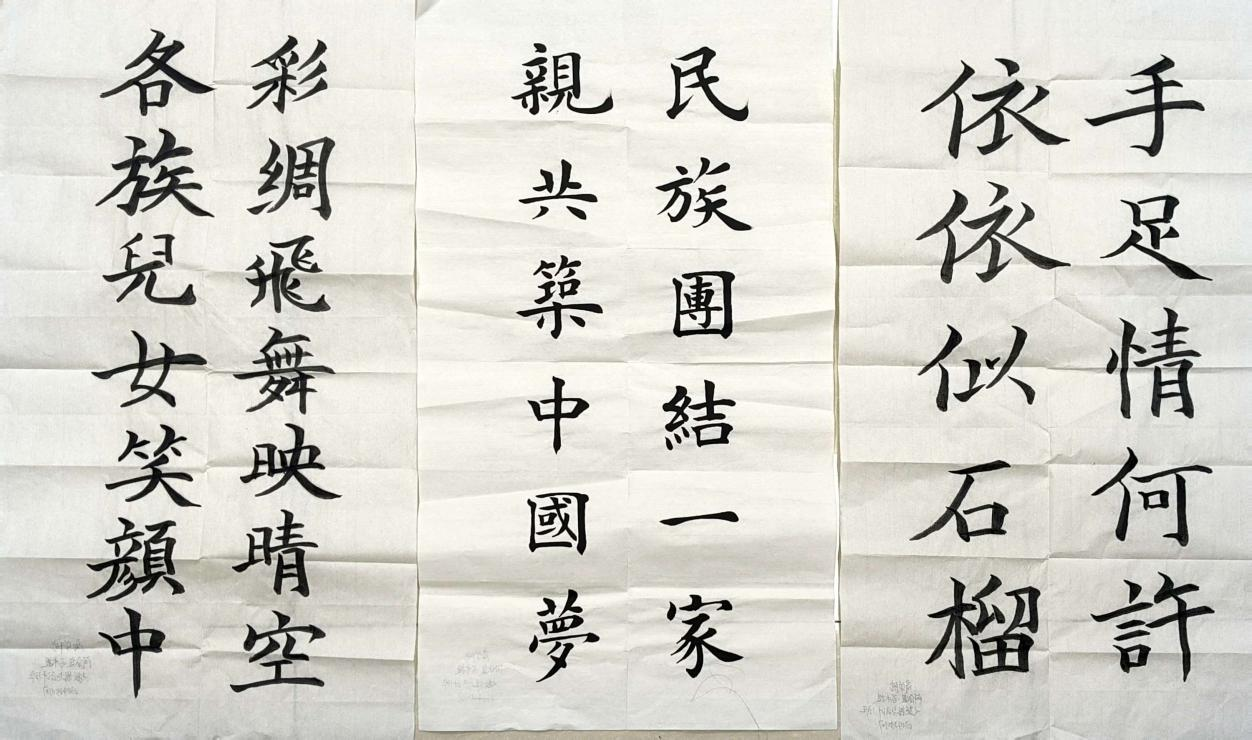 手足情何許
依依似石榴
民族團結一家
親共築中國夢
彩绸飛舞映晴空
各族兒女笑顔中